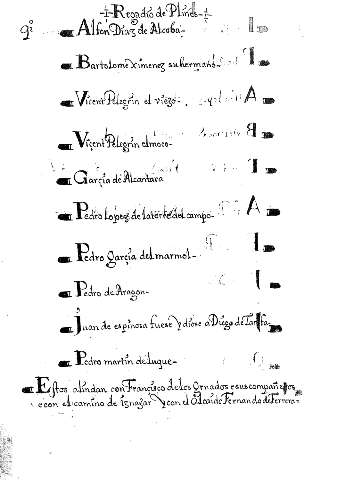 Regadio de Pinos
9º Alfon Diaz de Alcoba
Bartolome Ximenez su hermano
Vicent Pelegrin el viejo
Viçent Pelegrin el moço
Garçia de Alcantara
Pedro Lopez de la torre del campo
Pedro garçia del marmol
Pedro de Aragon
Juan de espinosa fuese y diose a Diego de
Pedro martin de luque
Estos alindan con Francisco de los Granados e sus compañeros
e con el camino de iznajar y con el Alcaide Fernando de Herrera